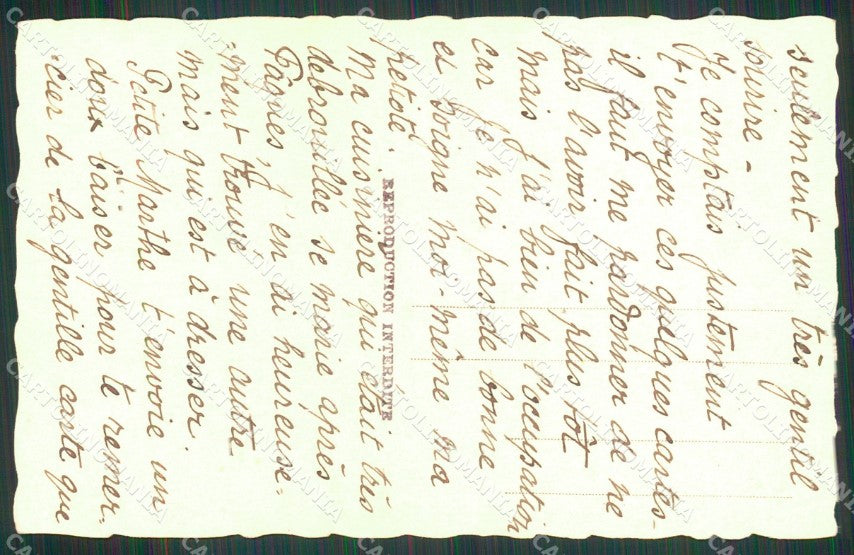 seulement un très gentil
sourire -
Je comptais justement
t'envoyer ces quelques cartes -
il faut me pardonner de ne
pas l'avoir fait plus tôt
mais j'ai bien de l'occupation
car je n'ai pas de bonne
et soigne moi-même ma
petite.
REPRODUCTION INTERDITE
Ma cuisinière qui était très
debrouillée se marie après
Pâques, j'en ai heureuse-
ment trouvé une autre
mais qui est à dresser.
Petite Marthe t'envoie un
doux baiser pour te remer-
cier de la gentille carte que
CARTOLINOMANIA